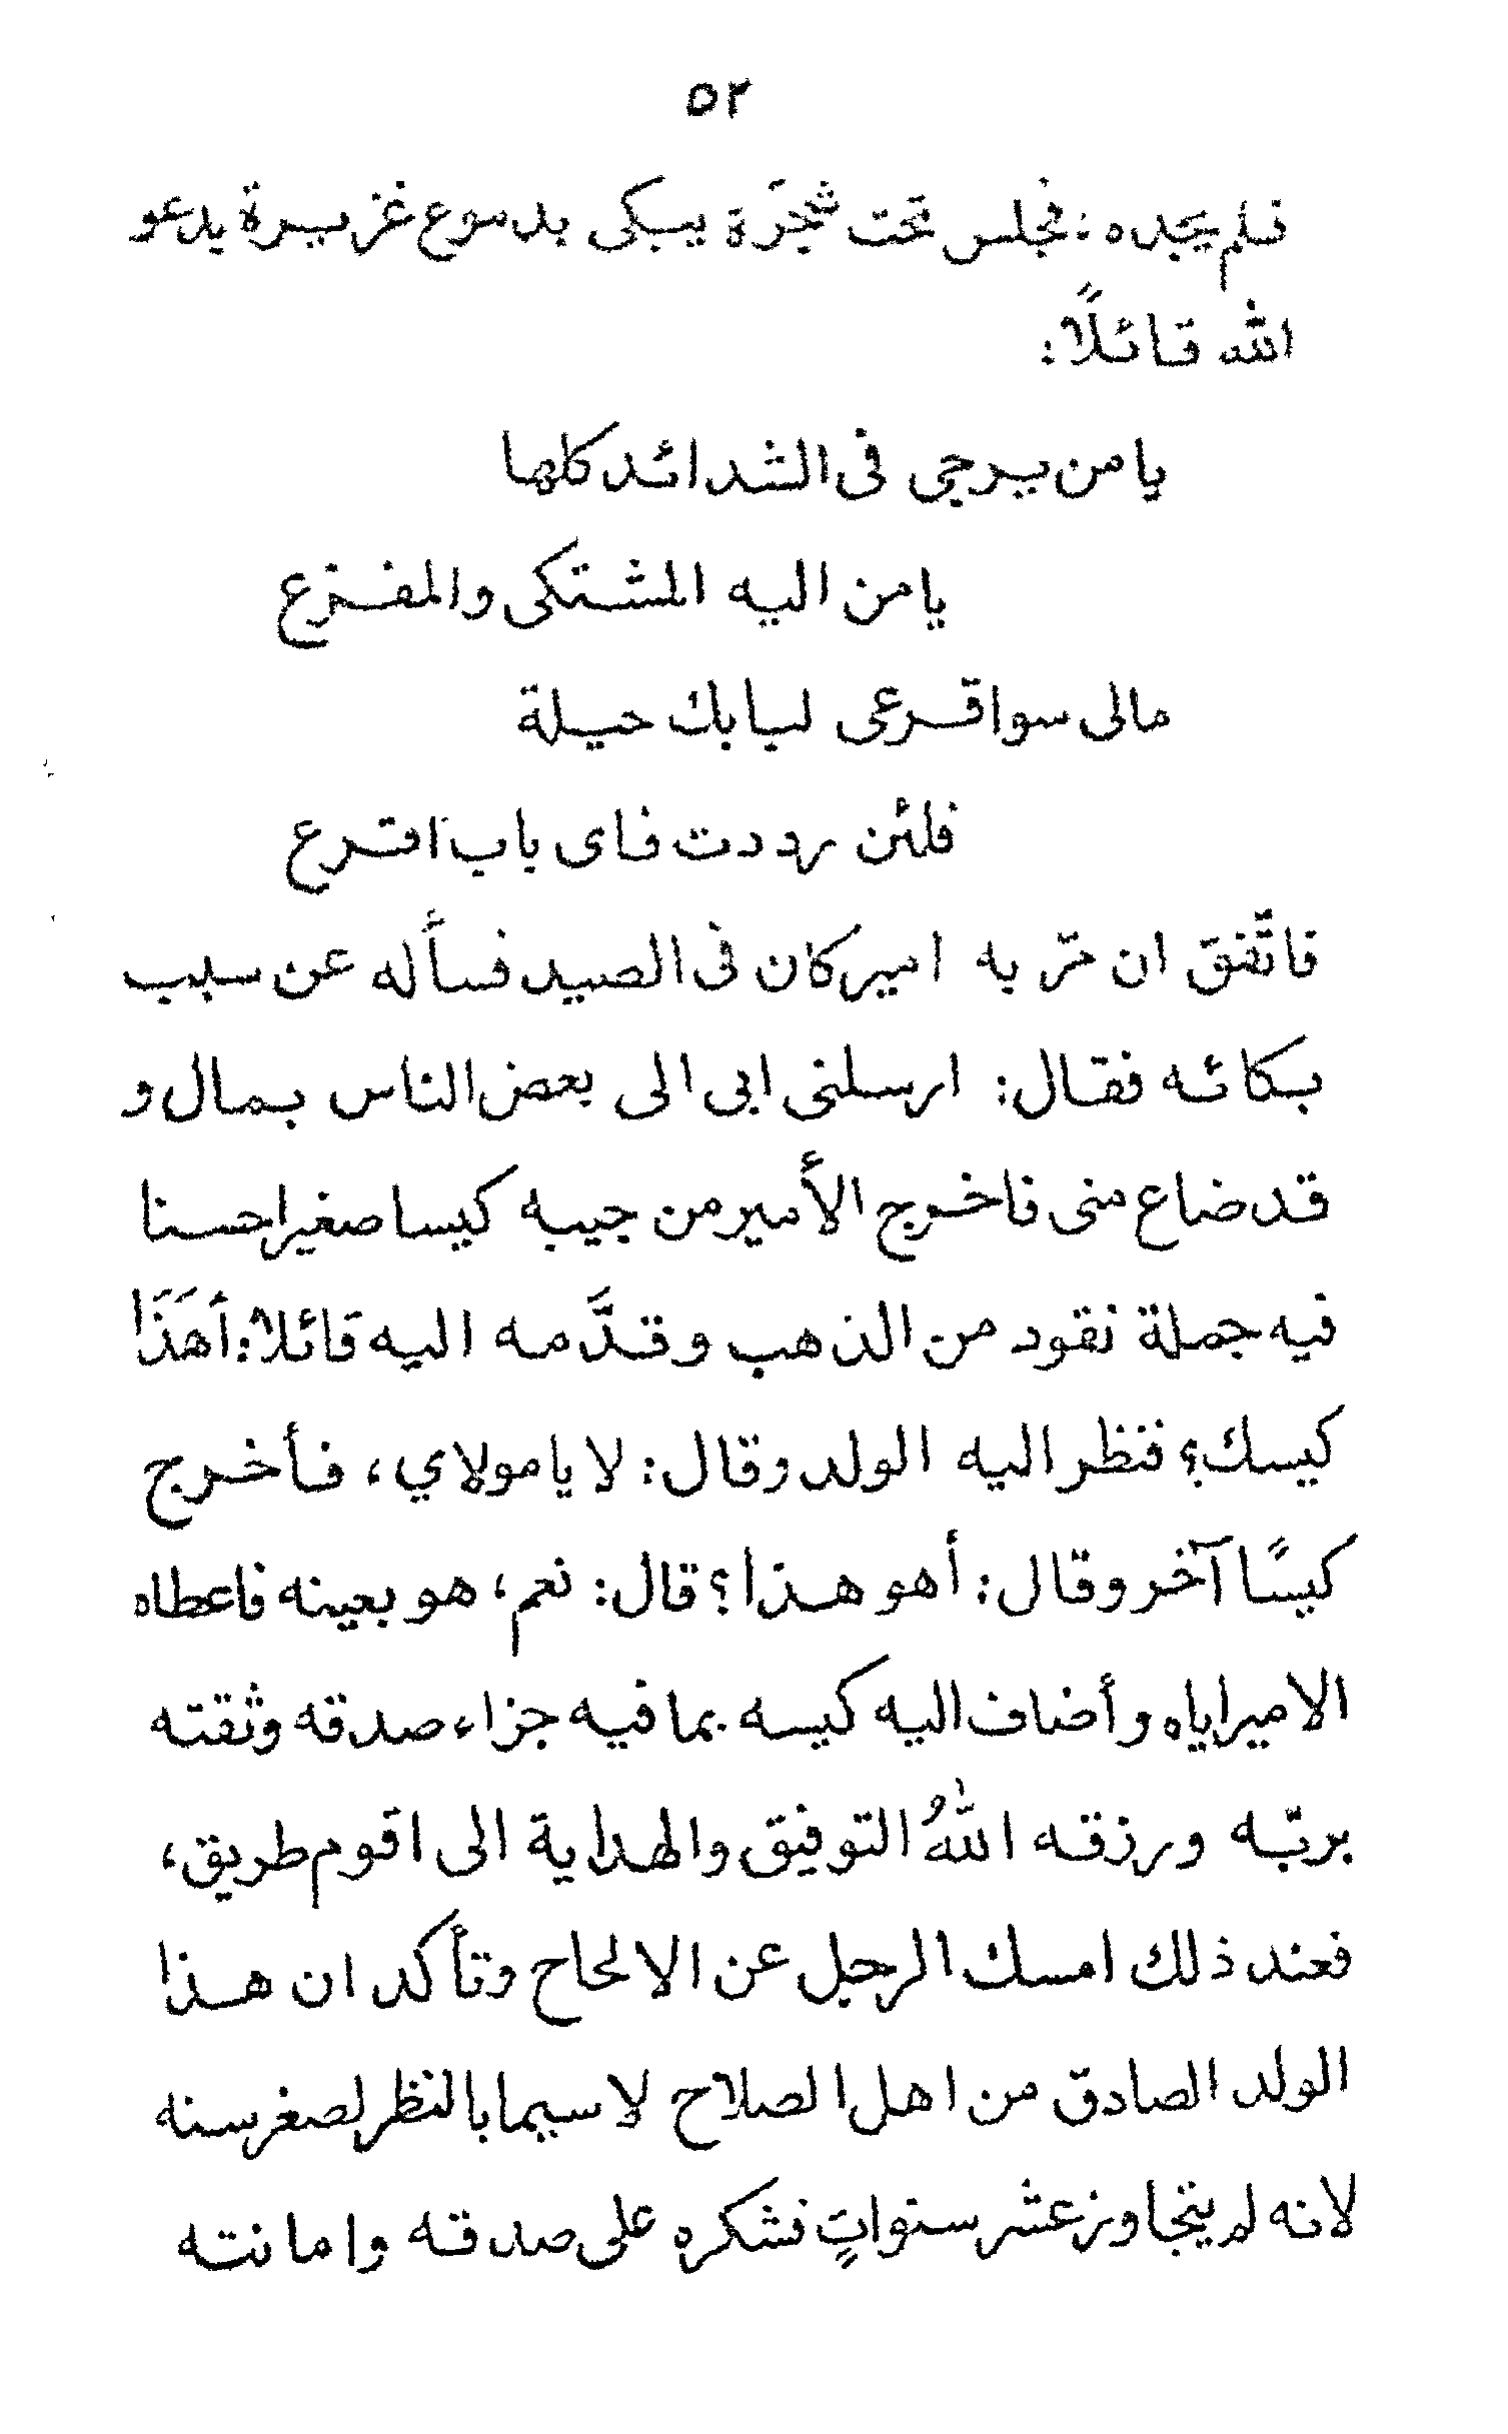 ٥٢
فلم يجده: فجلس تحت شجرَة يبكى بدموع غزيرة يدعو
الله قائلًا:
يا من يرجى فى الشدائد كلها
يا من اليه المشتكى والمفزع
مالى سوا قرعى لبابك حيلة
فلئن رددت فاى باب اقرع
فاتّفق ان مرّ به امير كان فى الصيد فسأله عن سبب
بكائه فقال: ارسلنى ابى الى بعض الناس بمال و
قد ضاع منى فاخرج الأمير من جيبه كيسا صغيرا حسنا
فيه جملة نقود من الذهب وقدَّمه اليه قائلا: أهَذَا
كيسك؟ فنظر اليه الولد وقال: لا يا مولاي، فأخرج
كيسًا آخر وقال: أهو هذا؟ قال: نعم، هو بعينه فاعطاه
الامير اياه وأضاف اليه كيسه بما فيه جزاء صدقه وثقته
بربّه ورزقه اللهُ التوفيق والهداية الى اقوم طريق،
فعند ذلك امسك الرجل عن الالحاح وتأكد ان هذا
الولد الصادق من اهل الصلاح لا سيما بالنظر لصغر سنه
لانه لم يتجاوز عشر سنواتٍ فشكره على صدقه وامانته